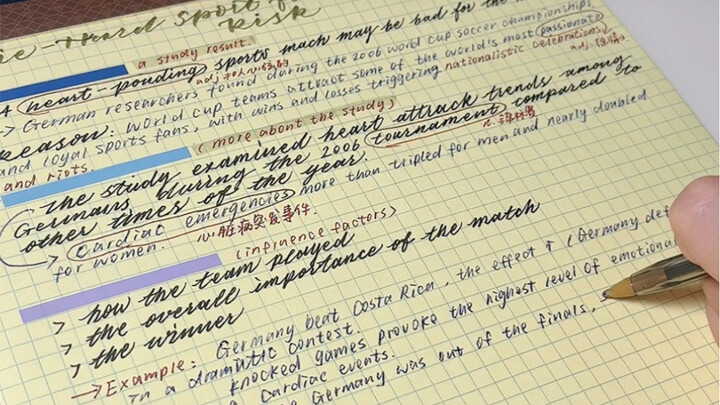 Die-Hard Sport
Risk
a study result.
A heart-pouding sports mach may be bad for the
adj 扣人心弦的
→ German researchers found during the 2006 world cup soccer championships,
Reason: World Cup teams attract some of the world's most passionate
and loyal sports fans, with wins and losses triggering nationalistic celebrations
and riots.
(more about the study)
The study examined heart attack trends among
Germans during the 2006 tournament compared to
n. 锦标赛
other times of the year.
→ cardiac emergencies more than tripled for men and nearly doubled
for women.
心脏病突发事件.
(influence factors)
> how the team played
> the overall importance of the match
> the winner
→ Example: Germany beat Costa Rica, the effect ↑ (Germany def
in a dramatic contest.
knocked games provoke the highest level of emotional
cardiac events.
Germany was out of the finals,